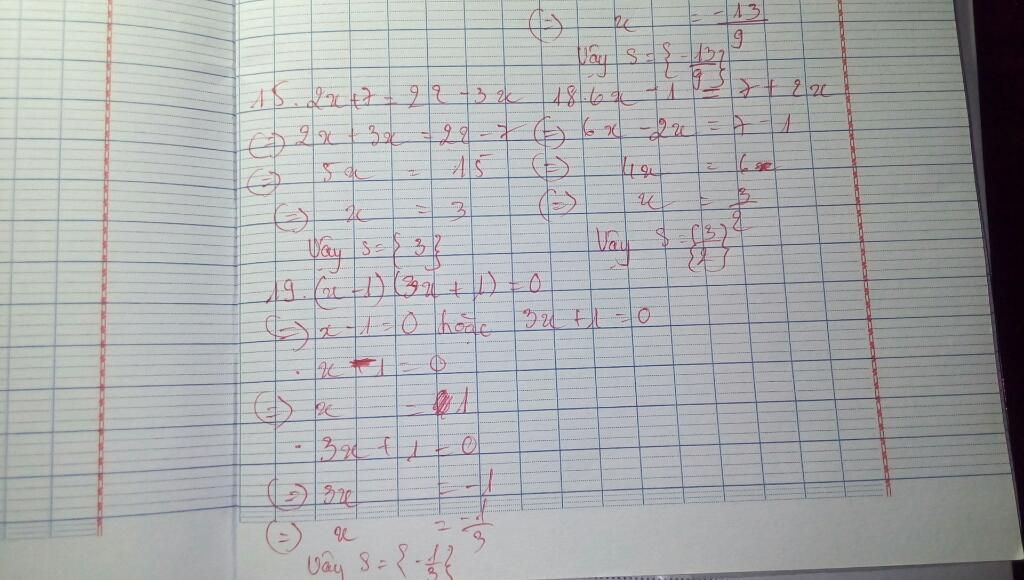 (=) x = -13/9
Vây S = {-13/9}
15. 2x + 7 = 22 - 3x
(=) 2x + 3x = 22 - 7
(=) 5x = 15
(=) x = 3
Vây S = { 3 }
18. 6x - 1 = 7 + 2x
(=) 6x - 2x = 7 - 1
(=) 4x = 6
(=) x = 3/2
Vây S = {3/2}
19. (x - 1) (3x + 1) = 0
(=) x - 1 = 0 hoặc 3x + 1 = 0
. x - 1 = 0
(=) x = 1
- 3x + 1 = 0
(=) 3x = -1
(=) x = -1/3
Vây S = {-1/3}